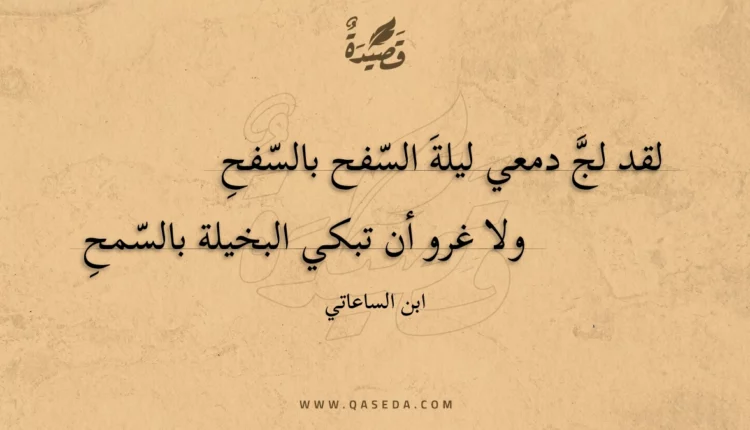 قَصِيْدَةٌ
لقد لجَّ دمعي ليلةَ السّفح بالسّفحِ
ولا غرو أن تبكي البخيلة بالسّمحِ
ابن الساعاتي
WWW.QASEDA.COM